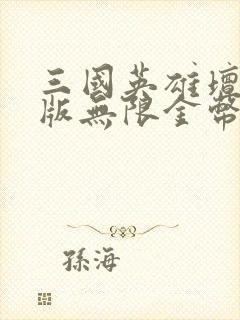 三國英雄壇
版無限金幣
孫海